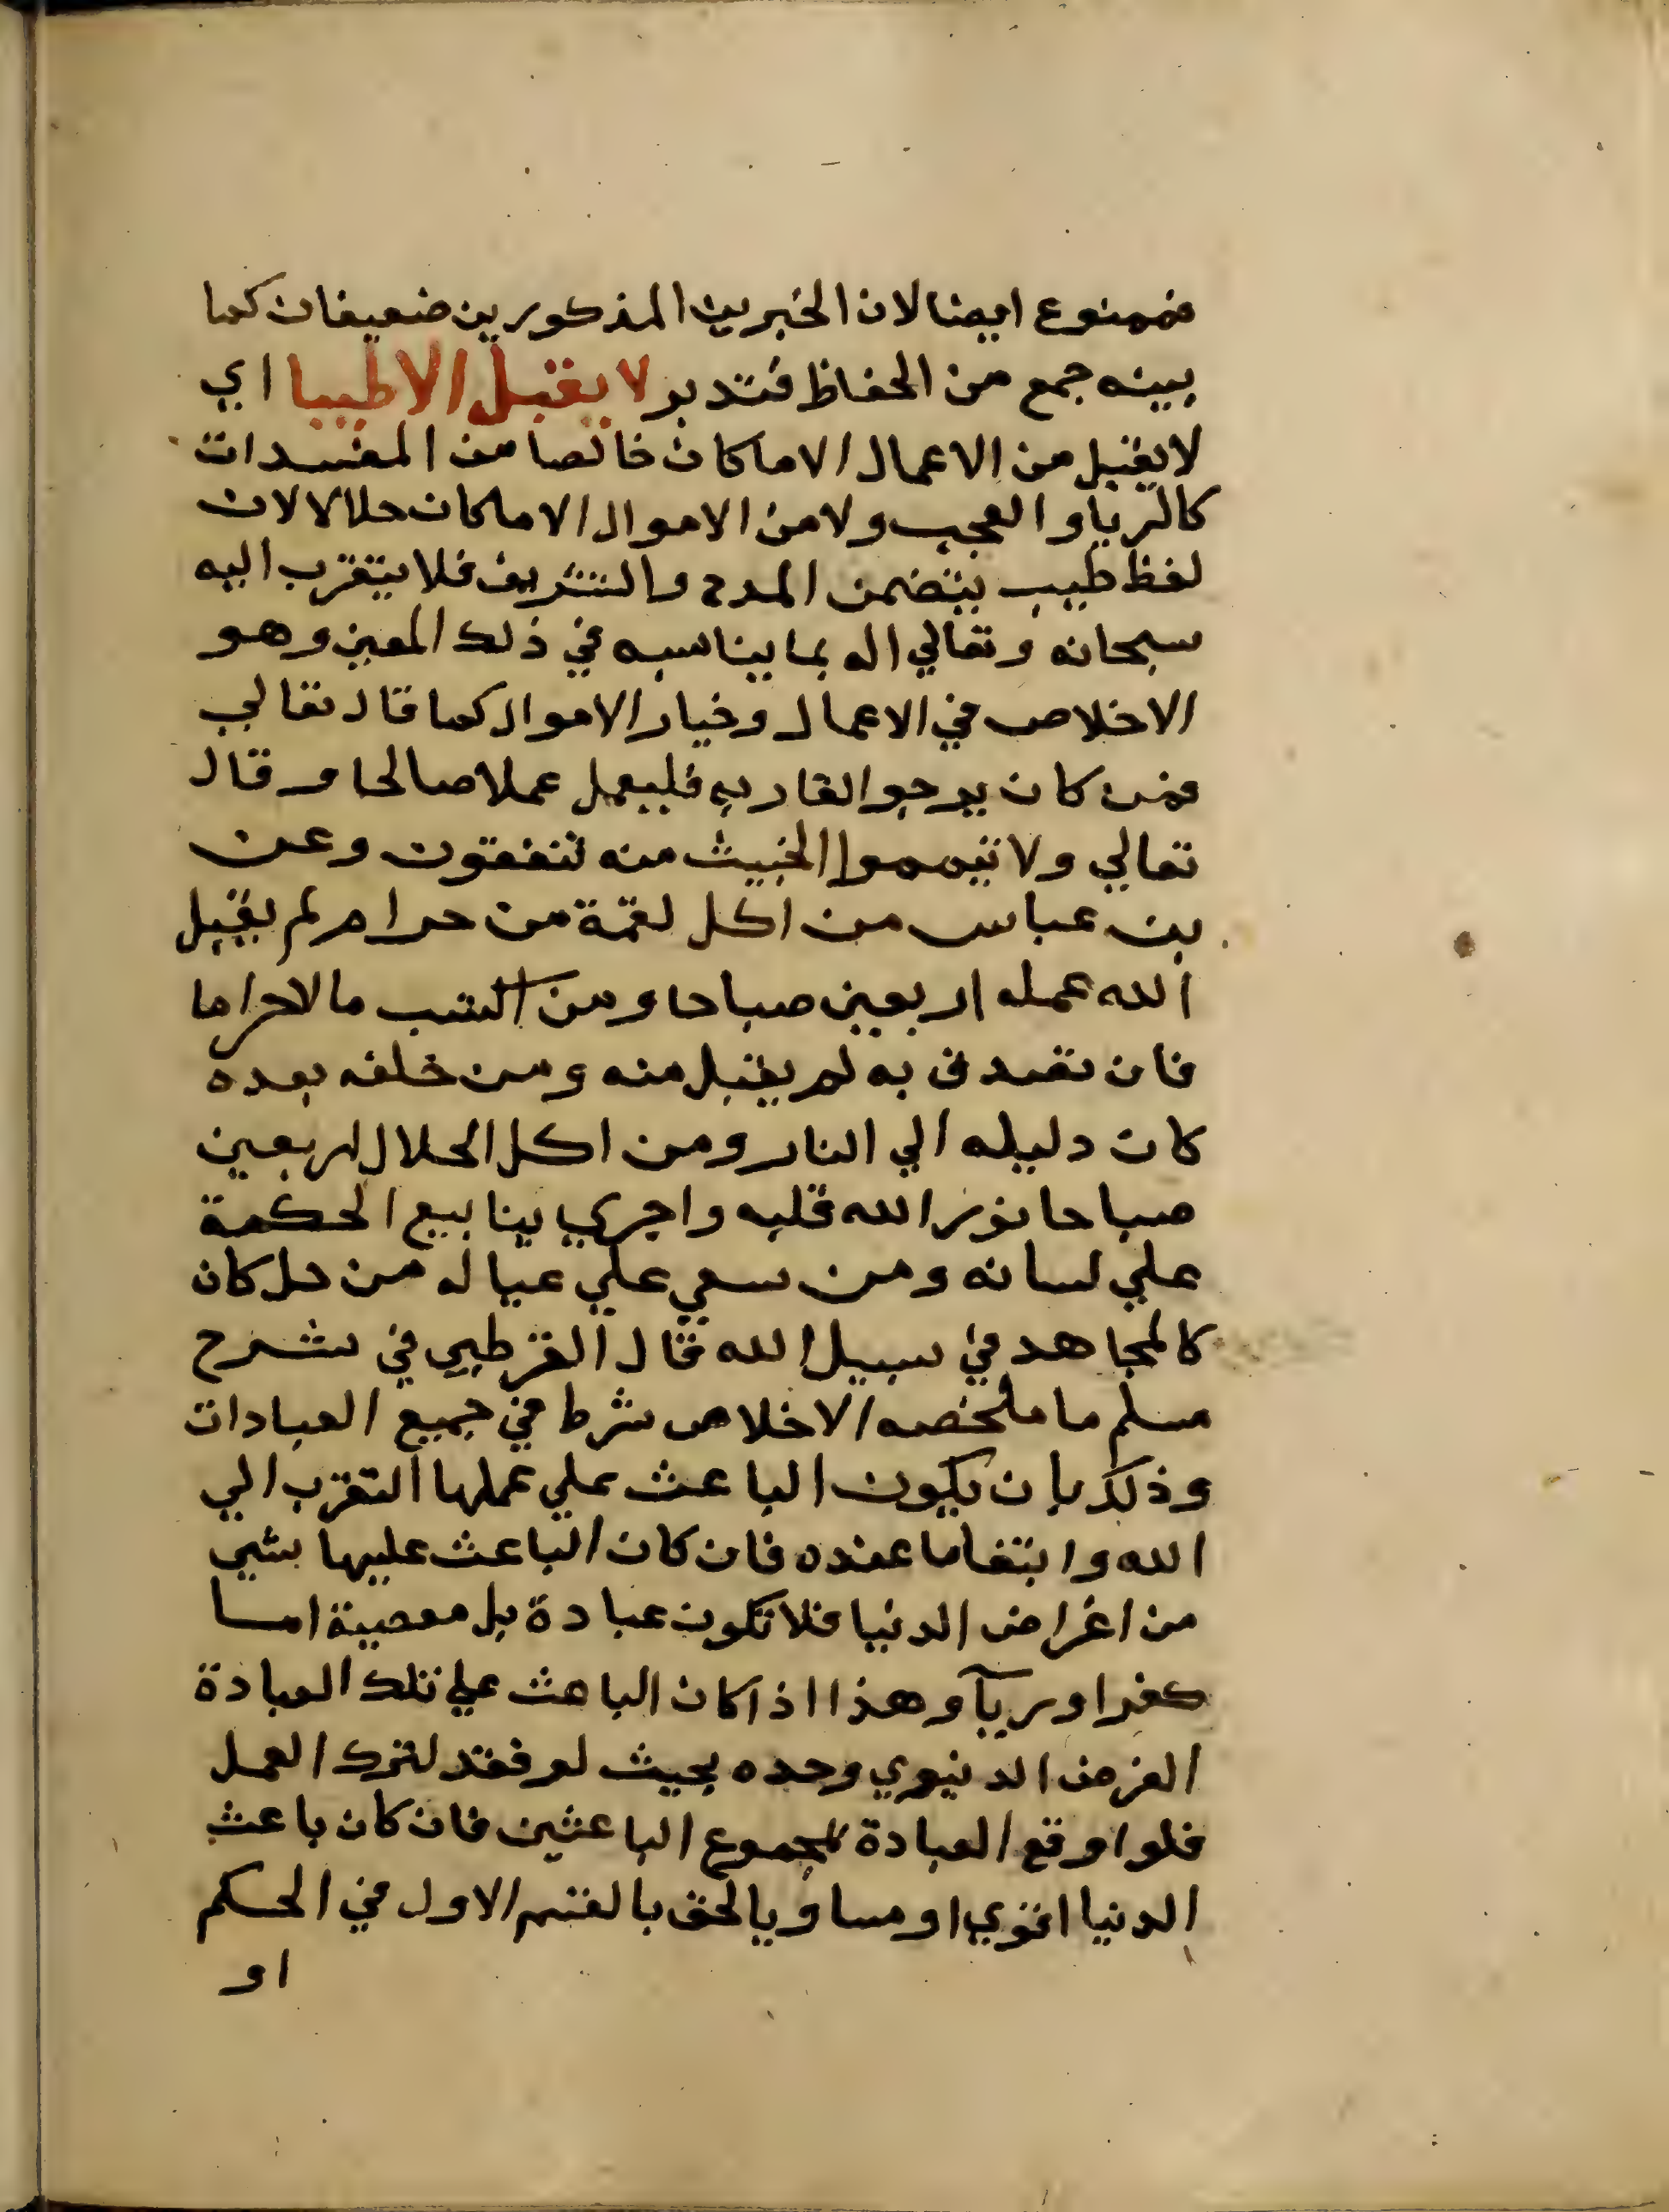 فممنوع ايضا لان الخبرين المذكورين ضعيفان كما
بينه جمع من الحفاظ فتدبر لا يقبل الا طيبا اي
لا يقبل من الاعمال الا ما كان خالصا من المفسدات
كالريا والعجب ولا من الاموال الا ما كان حلالا لان
لفظ طيب يتضمن المدح والتشريف فلا يتقرب اليه
سبحانه وتعالي اله بما يناسبه في ذلك المعين وهو
الاخلاص في الاعمال وخيار الاموال كما قال تعالي
فمن كان يرجوا لقا ربه فليعمل عملا صالحا وقال
تعالي ولا تيمموا الخبيث منه تنفقون وعن
بن عباس من اكل لقمة من حرام لم يقبل
الله عمله اربعين صباحا ومن اكتسب مالا حراما
فان تصدق به لم يقبل منه ومن خلفه بعده
كان دليله الي النار ومن اكل الحلال اربعين
صباحا نور الله قلبه واجري ينابيع الحكمة
علي لسانه ومن سعي علي عياله من حل كان
كالمجاهد في سبيل الله قال القرطبي في شرح
مسلم ما ملخصه الاخلاص شرط في جميع العبادات
وذلك بان يكون الباعث علي عملها التقرب الي
الله وابتغا ما عنده فان كان الباعث عليها بشي
من اغراض الدنيا فلا تكون عبادة بل معصية اما
كفرا او ريآ وهذا اذا كان الباعث علي تلك العبادة
الغرض الدنيوي وحده بحيث لو فقد لترك العمل
فلو اوقع العبادة لمجموع الباعثين فان كان باعث
الدنيا اقوي او مساويا لحق بالقسم الاول في الحكم
او